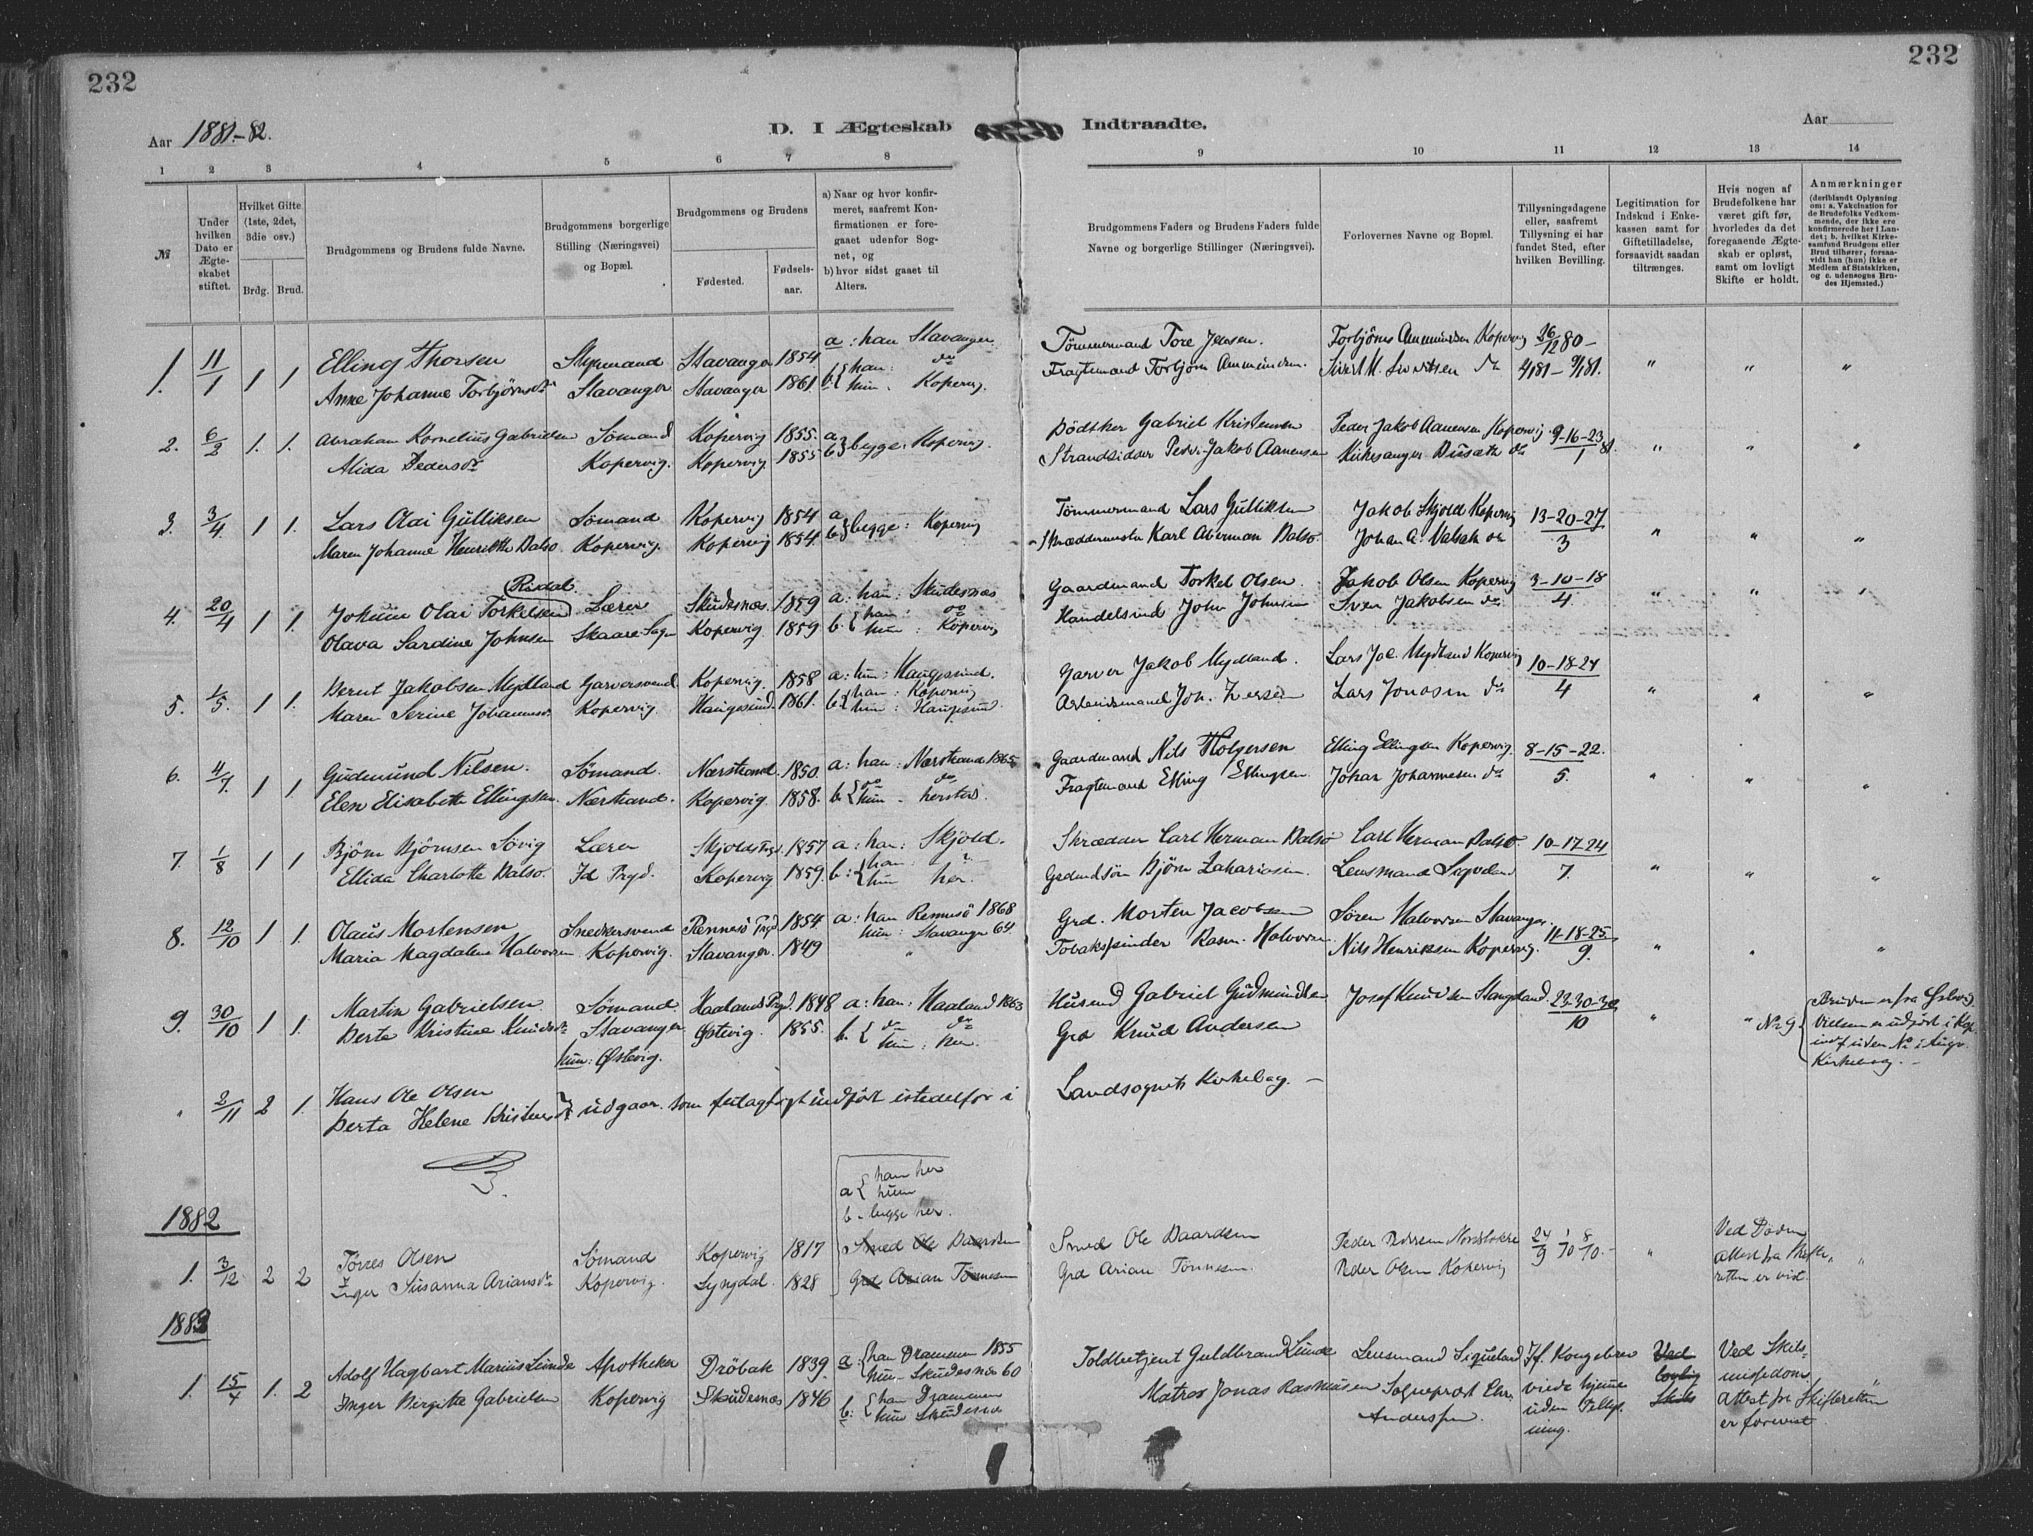 232
232
Aar 1881-82.
D. I Ægteskab Indtraadte.
Aar
1 2 3 4 5 6 7 8 9 10 11 12 13 14
№
Under hvilken Dato er Ægteskabet stiftet.
Hvilket Gifte (1ste, 2det, 3die osv.)
Brdg. Brud.
Brudgommens og Brudens fulde Navne.
Brudgommens borgerlige Stilling (Næringsvei) og Bopæl.
Brudgommens og Brudens
Fødested.
Fødselsaar.
a) Naar og hvor konfirmeret, saafremt Konfirmationen er foregaaet udenfor Sognet, og
b) hvor sidst gaaet til Alters.
Brudgommens Faders og Brudens Faders fulde Navne og borgerlige Stillinger (Næringsvei).
Forlovernes Navne og Bopæl.
Tillysningsdagene eller, saafremt Tillysning ei har fundet Sted, efter hvilken Bevilling.
Legitimation for Indskud i Enkekassen samt for Giftetilladelse, forsaavidt saadan tiltrænges.
Hvis nogen af Brudefolkene har været gift før, hvorledes da det foregaaende Ægteskab er opløst, samt om lovligt Skifte er holdt.
Anmærkninger (deriblandt Oplysning om: a. Vakcination for de Brudefolks Vedkommende, der ikke ere konfirmerede her i Landet; b. hvilket Kirkesamfund Brudgom eller Brud tilhører, forsaavidt han (hun) ikke er Medlem af Statskirken, og c. udensogns Brudes Hjemsted.)
1. 11/1 1 1. Elling Thorsen Styrmand Stavanger 1854 a: han Stavanger. Tømmermand Tore Jensen. Torbjørn Ammundsen Kopervig 26/12 80 -
Anne Johanne Torbjørnsdr Stavanger Stavanger 1861 b. { han: do hun. Kopervig. Fragtemand Torbjørn Ammundsen. Sivert M. Sivertsen do 4/1 81 - 9/1 81. " " "
2. 6/2 1. 1. Abraham Kornelius Gabrielsen Sömand Kopervig 1855. a b } begge: Kopervig. Bödtker Gabriel Kristensen Peder Jakob Aanensen Kopervig 9-16-23/1 81.
Alida Pedersdr Kopervig. Kopervig. 1855 Strandsidder Peder Jakob Aanensen Kirkesanger do " " "
3. 3/4 1 1. Lars Olai Gulliksen Sömand Kopervig 1854 a b } begge: Kopervig Tömmermand Lars Gulliksen Jakob Skjold Kopervig 13-20-27/3
Maren Johanne Henriette Dalsö Kopervig. Kopervig 1854. Skræddermester Karl Aberman Dalsö Johan A. Valsak do " " "
4. 20/4 1 1. Johan Olai Torkelsen (Risdal) Lærer Skudesnæs. 1859 a: han: Skudesnæs Gaardmand Torkel Olsen. Jakob Olsen Kopervig 3-10-18/4
Olava Sardine Johnsen Skaare Sogn Kopervig 1859 b. { han: do hun: Kopervig Handelsmd John Johnsen Sven Jakobsen do " "
5. 1/5. 1 1. Bernt Jakobsen Mydland Garversvend Kopervig. 1858 a: hun: Haugesund. Garver Jakob Mydland. Lars Jac. Mydland Kopervig 10-18-24/4
Maren Serine Johannesdr Kopervig. Haugesund. 1861. b { han: Kopervig hun: Haugesund. Arbeidsmand Joh. Iversen Lars Jonasen do " " "
6. 4/9 1 1. Gudmund Nilsen. Sömand. Nærstrand 1850. a: han: Nærstrand 1865 Gaardmand Nils Holgersen Elling Ellingsen Kopervig. 8-15-22./5.
Elen Elisabette Ellingsen. Nærstrand. Kopervig. 1858. b. { do do hun. hersteds. Fragtemand Elling Ellingsen Johan Johannesen do " " "
7. 1/8 1 1 Björn Björnsen Sövig Lærer Skjolds Prgd. 1857 a: han: Skjold. Skrædder Carl Herman Dalsö Carl Herman Dalsö. 10-17-24/7.
Ellida Charlotte Dalsö. Id Prgd. Kopervig 1859. b: { han hun her. Grdmandssön Björn Zakariasen. Lensmand Sigveland " " "
8. 12/10 1 1. Olaus Mortensen Snedkersvend Rennesö Prgd 1854 a: han Rennesö 1868 Grd. Morten Jacobsen Sören Halvorsen Stavanger. 11-18-25./9.
Maria Magdalene Halvorsen Kopervig. Stavanger. 1849 hun: Stavanger 64. Tobakspinder Rasm. Halvorsen Nils Henriksen Kopervig. " " "
9. 30/10 1 1. Martin Gabrielsen. Sömand Haalands Prgd. 1848 a: han: Haaland 1863 Husmd Gabriel Gudmundsen Josef Knudsen Stangeland. 23-30-30/10
Berte Kristine Knudsdr Stavanger Østevig. 1855. b. { do do hun: her. Grd Knud Andersen " " No 9. Bruden er fra
hun: Østevig. Vielsen er udfört i Kop. uden No i Augv. Kirkebog. -
" 2/11 2 1. Hans Ole Olsen
Berta Helene Kristensdr } udgaar som feilagtigt indfört istedetfor i Landsognets Kirkebog. -
1882
a { han her hun
b - begge her.
1. 3/12 2 2 Törres Olsen Sömand Kopervig 1817 Smed Ole Baardsen Smed Ole Baardsen Peder 24/9 1/10 8/10. - " Ved Döden
Inger Susanna Ariansdr Kopervig. Lyngdal. 1828 Grd Arian Tönnesen Grd Arian Tönnesen. Peder Olsen Kopervig Attest fra Skifteretten er vist. "
1883
1. 15/4 1. 2 Adolf Hagbart Marius Lunde Apotheker Dröbak 1839. a { han Drammen 1855 hun - Skudesnæs 60 Toldbetjent Guldbrand Lunde Lensmand Sigveland If. Kongebrev Ved lovlig Skifte Ved Skilsmissedom.
Inger Birgitte Gabrielsen Kopervig Skudesnæs 1846 b: { han Drammen hun Skudesnæs Matros Jonas Rasmussen Sogneprest Chr. Anderssen viede hjemme uden Tillysning. Attest fra Skifteretten er forevist. "